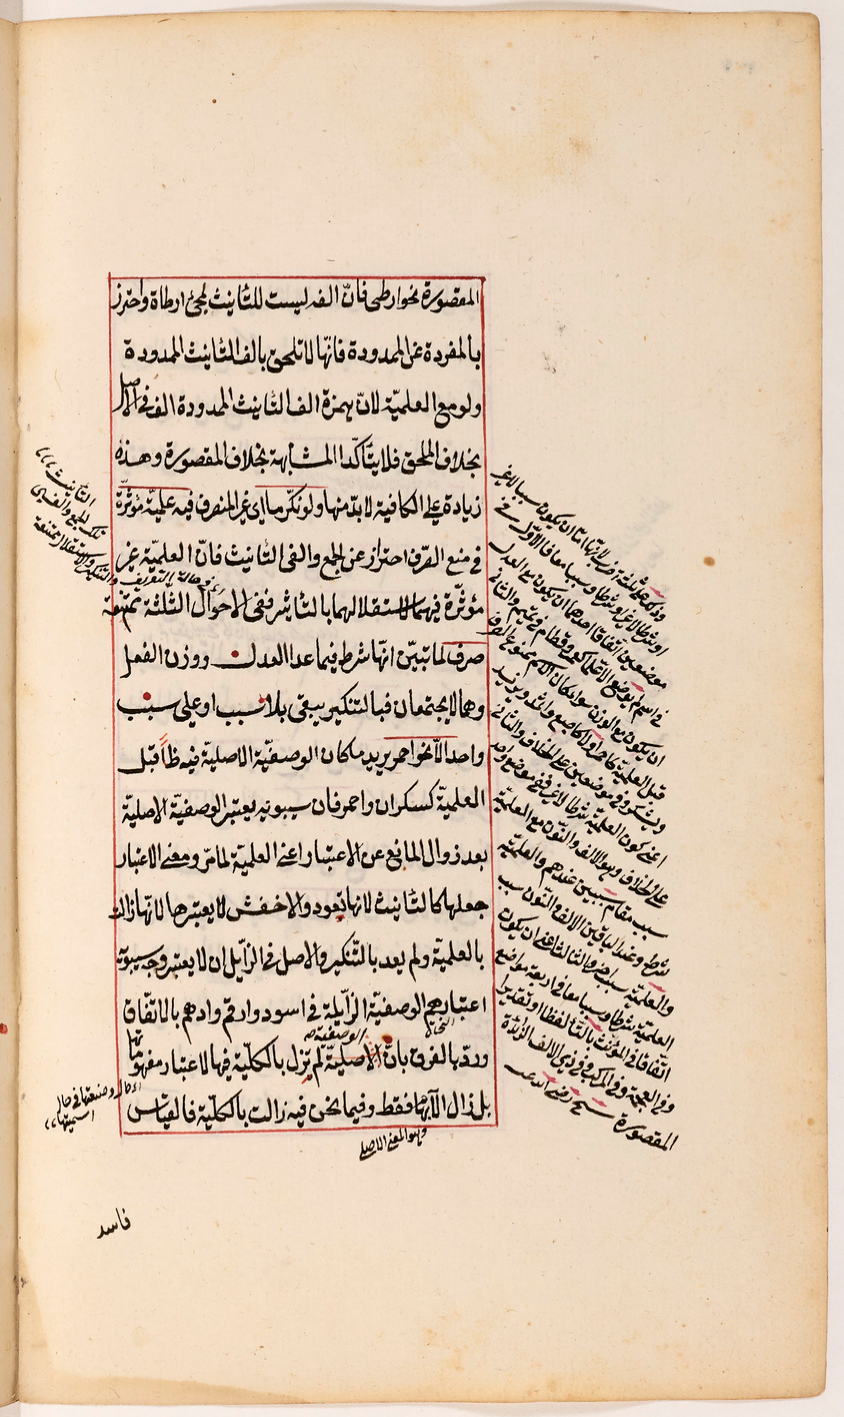 المقصورة نحو ارطى فانّ الفه ليست للتأنيث لمجئ ارطاة واحترز
بالمفردة عن الممدودة فانّها لا تلحق بالف التأنيث الممدودة
ولو مع العلميّة لانّ همزة الف التأنيث الممدودة الف فى الاصل
بخلاف الملحق فلا يتأكّد المشابهة بخلاف المقصورة وهذه
زيادة على الكافية لابدّ منها ولو نكّر ما اى غير المنصرف فيه علميّة مؤثّرة
فى منع الصرف احتراز عن الجمع والفى التأنيث فانّ العلميّة غير
مؤثّرة فيهما لاستقلالهما بالتأثير ففى الاحوال الثلثة تمتنعة
صرف لما تبيّن انّها شرط فيما عدا العدل ووزن الفعل
وهما لا يجتمعان فبالتنكير يبقى بلا سبب او على سبب
واحد الّا نحو احمر يريد ما كان الوصفيّة الاصليّة فيه ظاً قبل
العلميّة كسكران واحمر فان سيبويه يعتبر الوصفيّة الاصلية
بعد زوال المانع عن الاعتبار اعنى العلمية لما مرّ ومعنى الاعتبار
جعلها كالتأنيث لانها تعود والاخفش لا يعتبرها لانّها زالت
بالعلميّة ولم يعد بالتّنكير والاصل فى الزّايل ان لا يعتبر وجه سيبويه
اعتبارهم الوصفيّة الزّايلة فى اسود وارقم وادهم بالاتّفاق
وردّ بالفرق بانّ الاصليّة لم يزل بالكلّيّة فيها لاعتبار مفهوماتها
بل زال الابهام فقط وفيما نحن فيه زالت بالكلّيّة فالقياس
النحاة
الوصفيّة
وهو المعنى الاصلى
فاسد
التأنيث
تلك الجمع والف
اسميتها
او شرطا لاخر او شرطا وسببا معا فالاوّل فى
موضعين اتفاقا احدهما ان يكون مع العدل
ان يكون مع الوزن سواء كان الاسم ممنوع الصرف
اعنى كون العلميّة شرطا لاخر ففى موضع واحد
على الخلاف وهو الالف والنّون مع العلميّة
سبب مقام سببين عندهم والعلميّة
شرط وعند الباقين الالف والنّون سبب
والعلميّة سبب اخر والثالث اعنى ان يكون
العلميّة شرطا وسببا معا فى اربعة مواضع
اتّفاقا فى المؤنّث بالتّاء لفظا او تقديرا
وفى العجمة وفى المركب وفى ذى الالف الزّائدة
المقصورة